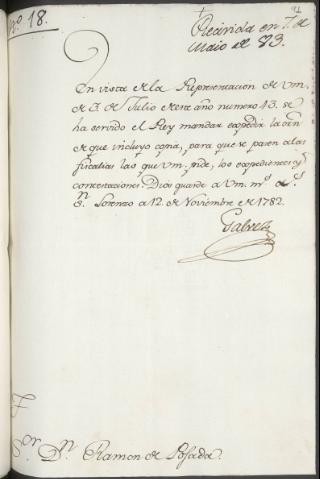 N.º 18.
Recivida en 7. de
Maio de 83.
En vista de la Representacion de Vm.
de 3. de Julio de este año numero 43. se
ha servido el Rey mandar expedir la orn.
de que incluyo copia, para que se pasen a las
fiscalias las que Vm. pide, los expedientes y
contestaciones. Dios guarde a Vm. m.s a.s
S.n Lorenzo a 12 de Noviembre de 1782.
Galvez
S.or D.n Ramon de Posada.